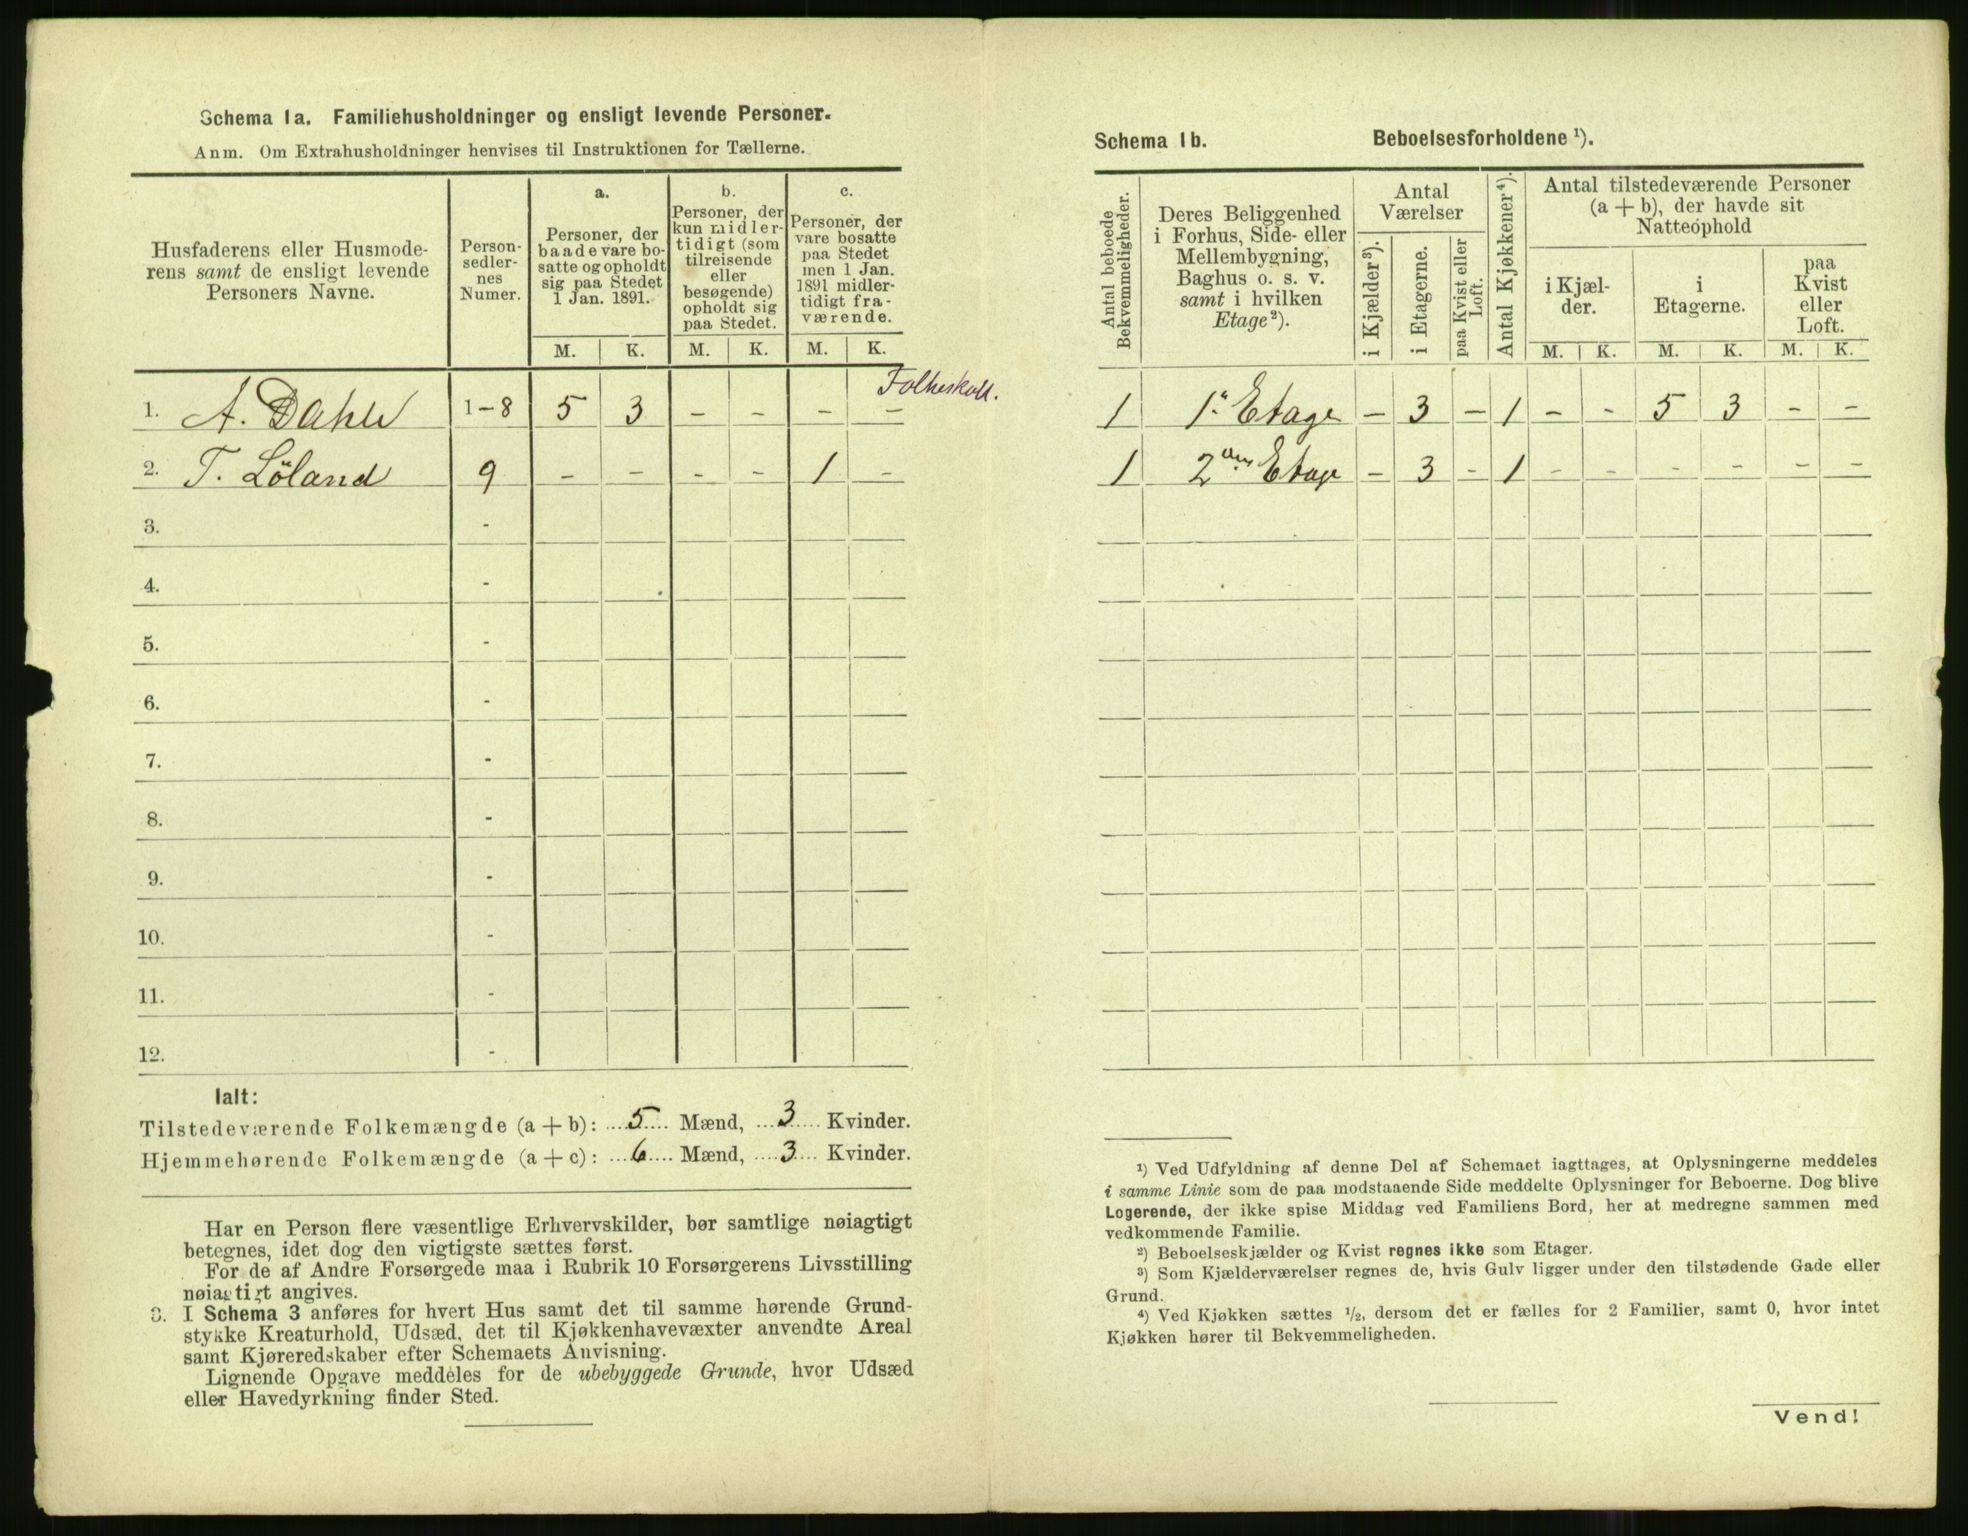 Schema 1a. Familiehusholdninger og ensligt levende Personer.
Anm. Om Extrahusholdninger henvises til Instruktionen for Tællerne.
Husfaderens eller Husmode-
rens samt de ensligt levende
Personers Navne.
Person-
sedler-
nes
Numer.
a.
Personer, der
baade vare bo-
satte og opholdt
sig paa Stedet
1 Jan. 1891.
b.
Personer, der
kun midler-
tidigt (som
tilreisende
eller
besøgende)
opholdt sig
paa Stedet.
c.
Personer, der
vare bosatte
paa Stedet
men 1 Jan.
1891 midler-
tidigt fra-
værende.
M. K. M. K. M. K.
Folkeskoll.
1. A. Dahle 1-8 5 3 - - - -
2. T. Löland 9 - - - - 1 -
3. -
4. -
5. -
6. -
7. -
8. -
9. -
10. -
11. -
12. -
Ialt:
Tilstedeværende Folkemængde (a + b): 5 Mænd, 3 Kvinder.
Hjemmehørende Folkemængde (a + c): 6 Mænd, 3 Kvinder.
Har en Person flere væsentlige Erhvervskilder, bør samtlige nøiagtigt
betegnes, idet dog den vigtigste sættes først.
For de af Andre Forsørgede maa i Rubrik 10 Forsørgerens Livsstilling
nøiagtigt angives.
3. I Schema 3 anføres for hvert Hus samt det til samme hørende Grund-
stykke Kreaturhold, Udsæd, det til Kjøkkenhavevæxter anvendte Areal
samt Kjøreredskaber efter Schemaets Anvisning.
Lignende Opgave meddeles for de ubebyggede Grunde, hvor Udsæd
eller Havedyrkning finder Sted.
Schema 1b. Beboelsesforholdene ¹).
Antal beboede
Bekvemmeligheder.
Deres Beliggenhed
i Forhus, Side- eller
Mellembygning,
Baghus o. s. v.
samt i hvilken
Etage²).
Antal
Værelser
i Kjælder³).
i Etagerne.
paa Kvist eller
Loft.
Antal Kjøkkener⁴).
Antal tilstedeværende Personer
(a + b), der havde sit
Natteophold
i Kjæl-
der.
i
Etagerne.
paa
Kvist
eller
Loft.
M. K. M. K. M. K.
1 1ᵉ Etage - 3 - 1 - - 5 3 - -
1 2den Etage - 3 - 1 - - - - - -
¹) Ved Udfyldning af denne Del af Schemaet iagttages, at Oplysningerne meddeles
i samme Linie som de paa modstaaende Side meddelte Oplysninger for Beboerne. Dog blive
Logerende, der ikke spise Middag ved Familiens Bord, her at medregne sammen med
vedkommende Familie.
²) Beboelseskjælder og Kvist regnes ikke som Etager.
³) Som Kjælderværelser regnes de, hvis Gulv ligger under den tilstødende Gade eller
Grund.
⁴) Ved Kjøkken sættes ½, dersom det er fælles for 2 Familier, samt 0, hvor intet
Kjøkken hører til Bekvemmeligheden.
Vend!